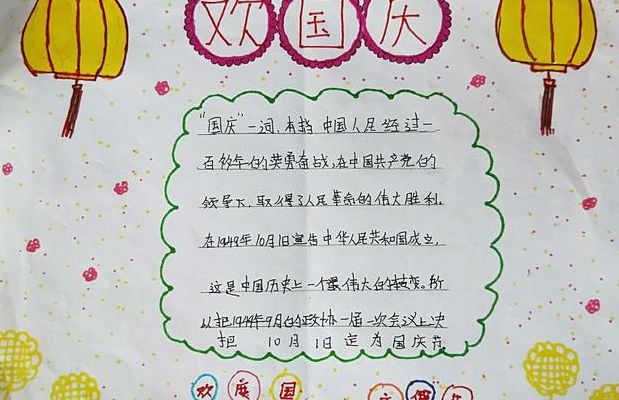 欢国庆
"国庆"一词,本指中国人民经过一
百多年的英勇奋战,在中国共产党的
领导下,取得了人民革命的伟大胜利,
在1949年10月1日宣告中华人民共和国成立,
这是中国历史上一个最伟大的转变。所
以把1949年9月的政协一届一次会议上决
把 10月1日定为国庆节
欢度国